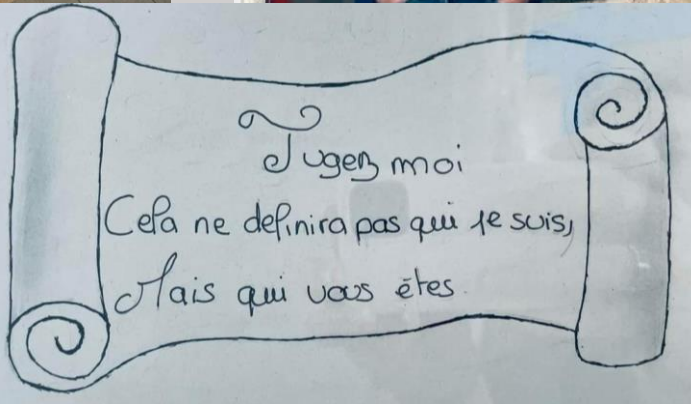 Jugez moi
Cela ne definira pas qui je suis,
Mais qui vous êtes.